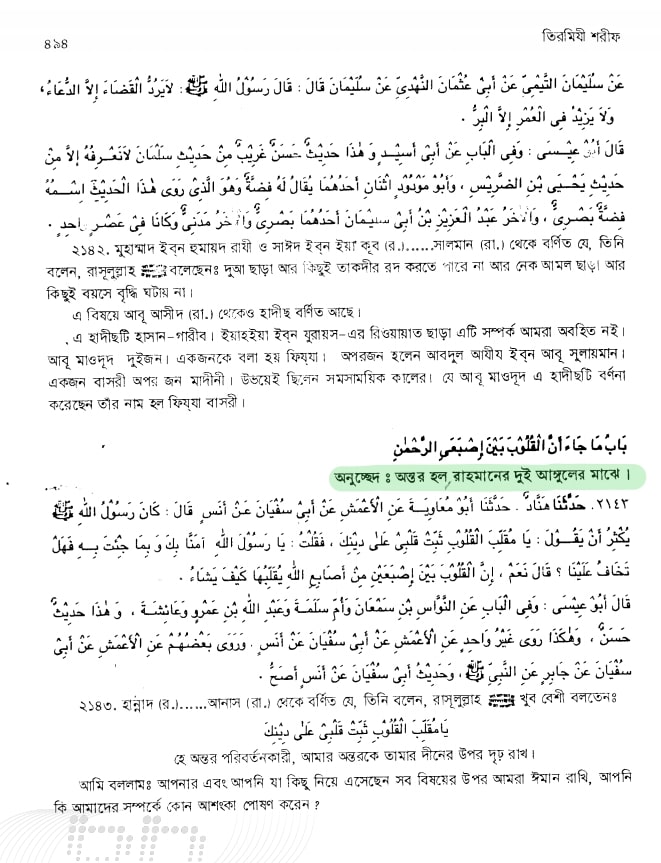 ৪৯৪
তিরমিযী শরীফ
عَنْ سُلَيْمَانَ التَّيْمِيِّ عَنْ أَبِي عُثْمَانَ النَّهْدِيِّ عَنْ سُلَيْمَانَ قَالَ : قَالَ رَسُولُ اللهِ ﷺ : لاَيَرُدُّ الْقَضَاءَ إِلاَّ الدُّعَاءُ،
وَلاَ يَزِيْدُ فِى الْعُمُرِ إِلاَّ الْبِرُّ .
قَالَ أَبُوْ عِيْسَى : وَفِى الْبَابِ عَنْ أَبِي أَسِيدٍ وَ هٰذَا حَدِيْثٌ حَسَنٌ غَرِيْبٌ مِنْ حَدِيْثِ سَلْمَانَ لاَنَعْرِفُهُ إِلاَّ مِنْ
حَدِيْثِ يَحْيَى بْنِ الضُّرَيْسِ ، وَأَبُوْ مَوْدُوْدٍ اثْنَانِ أَحَدُهُمَا يُقَالُ لَهُ فِضَّةُ وَهُوَ الَّذِى رَوَى هٰذَا الْحَدِيْثَ اِسْمُهُ
فِضَّةُ بَصْرِىٌّ ، وَالْاٰخَرُ عَبْدُ الْعَزِيْزِ بْنُ أَبِي سُلَيْمَانَ أَحَدُهُمَا بَصْرِىٌّ وَالْاٰخَرُ مَدَنِىٌّ وَكَانَا فِى عَصْرٍ وَاحِدٍ .
২১৪২. মুহাম্মাদ ইব্‌ন হুমায়দ রাযী ও সাঈদ ইব্‌ন ইয়াকূব (র.)......সালমান (রা.) থেকে বর্ণিত যে, তিনি
বলেন, রাসূলুল্লাহ ﷺ বলেছেনঃ দুআ ছাড়া আর কিছুই তাকদীর রদ করতে পারে না আর নেক আমল ছাড়া আর
কিছুই বয়সে বৃদ্ধি ঘটায় না।
এ বিষয়ে আবূ আসীদ (রা.) থেকেও হাদীছ বর্ণিত আছে।
এ হাদীছটি হাসান-গারীব। ইয়াহইয়া ইব্‌ন যুরায়স-এর রিওয়ায়াত ছাড়া এটি সম্পর্ক আমরা অবহিত নই।
আবূ মাওদূদ দুইজন। একজনকে বলা হয় ফিয্‌যা। অপরজন হলেন আবদুল আযীয ইব্‌ন আবূ সুলায়মান।
একজন বাসরী অপর জন মাদীনী। উভয়েই ছিলেন সমসাময়িক কালের। যে আবূ মাওদূদ এ হাদীছটি বর্ণনা
করেছেন তাঁর নাম হল ফিয্‌যা বাসরী।
بَابُ مَا جَاءَ أَنَّ الْقُلُوْبَ بَيْنَ إِصْبَعَىِ الرَّحْمٰنِ
অনুচ্ছেদ ঃ অন্তর হল, রাহমানের দুই আঙ্গুলের মাঝে।
٢١٤٣. حَدَّثَنَا هَنَّادٌ . حَدَّثَنَا أَبُوْ مُعَاوِيَةَ عَنِ الْأَعْمَشِ عَنْ أَبِي سُفْيَانَ عَنْ أَنَسٍ قَالَ : كَانَ رَسُوْلُ اللهِ ﷺ
يُكْثِرُ أَنْ يَقُوْلَ : يَا مُقَلِّبَ الْقُلُوْبِ ثَبِّتْ قَلْبِى عَلٰى دِيْنِكَ ، فَقُلْتُ : يَا رَسُوْلَ اللهِ اٰمَنَّا بِكَ وَ بِمَا جِئْتَ بِهِ فَهَلْ
تَخَافُ عَلَيْنَا ؟ قَالَ نَعَمْ ، إِنَّ الْقُلُوْبَ بَيْنَ إِصْبَعَيْنِ مِنْ أَصَابِعِ اللهِ يُقَلِّبُهَا كَيْفَ يَشَاءُ .
قَالَ أَبُوْ عِيْسَى : وَفِى الْبَابِ عَنِ النَّوَّاسِ بْنِ سَمْعَانَ وَأُمِّ سَلَمَةَ وَعَبْدِ اللهِ بْنِ عَمْرٍو وَعَائِشَةَ ، وَ هٰذَا حَدِيْثٌ
حَسَنٌ ، وَهٰكَذَا رَوَى غَيْرُ وَاحِدٍ عَنِ الْأَعْمَشِ عَنْ أَبِي سُفْيَانَ عَنْ أَنَسٍ . وَرَوَى بَعْضُهُمْ عَنِ الْأَعْمَشِ عَنْ أَبِي
سُفْيَانَ عَنْ جَابِرٍ عَنِ النَّبِيِّ ﷺ ، وَحَدِيْثُ أَبِي سُفْيَانَ عَنْ أَنَسٍ أَصَحُّ .
২১৪৩. হান্নাদ (র.)......আনাস (রা.) থেকে বর্ণিত যে, তিনি বলেন, রাসূলুল্লাহ ﷺ খুব বেশী বলতেনঃ
يَامُقَلِّبَ الْقُلُوْبِ ثَبِّتْ قَلْبِى عَلٰى دِيْنِكَ
হে অন্তর পরিবর্তনকারী, আমার অন্তরকে তামার দীনের উপর দৃঢ় রাখ।
আমি বললামঃ আপনার এবং আপনি যা কিছু নিয়ে এসেছেন সব বিষয়ের উপর আমরা ঈমান রাখি, আপনি
কি আমাদের সম্পর্কে কোন আশংকা পোষণ করেন ?